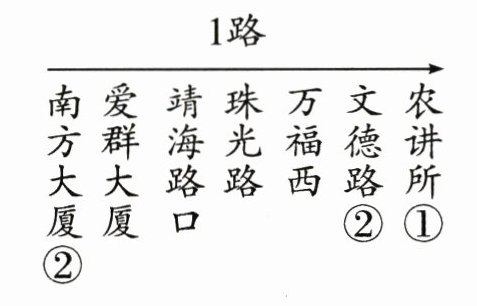 1路
南方大厦②
爱群大厦
靖海路口
珠光路
万福西
文德路②
农讲所①